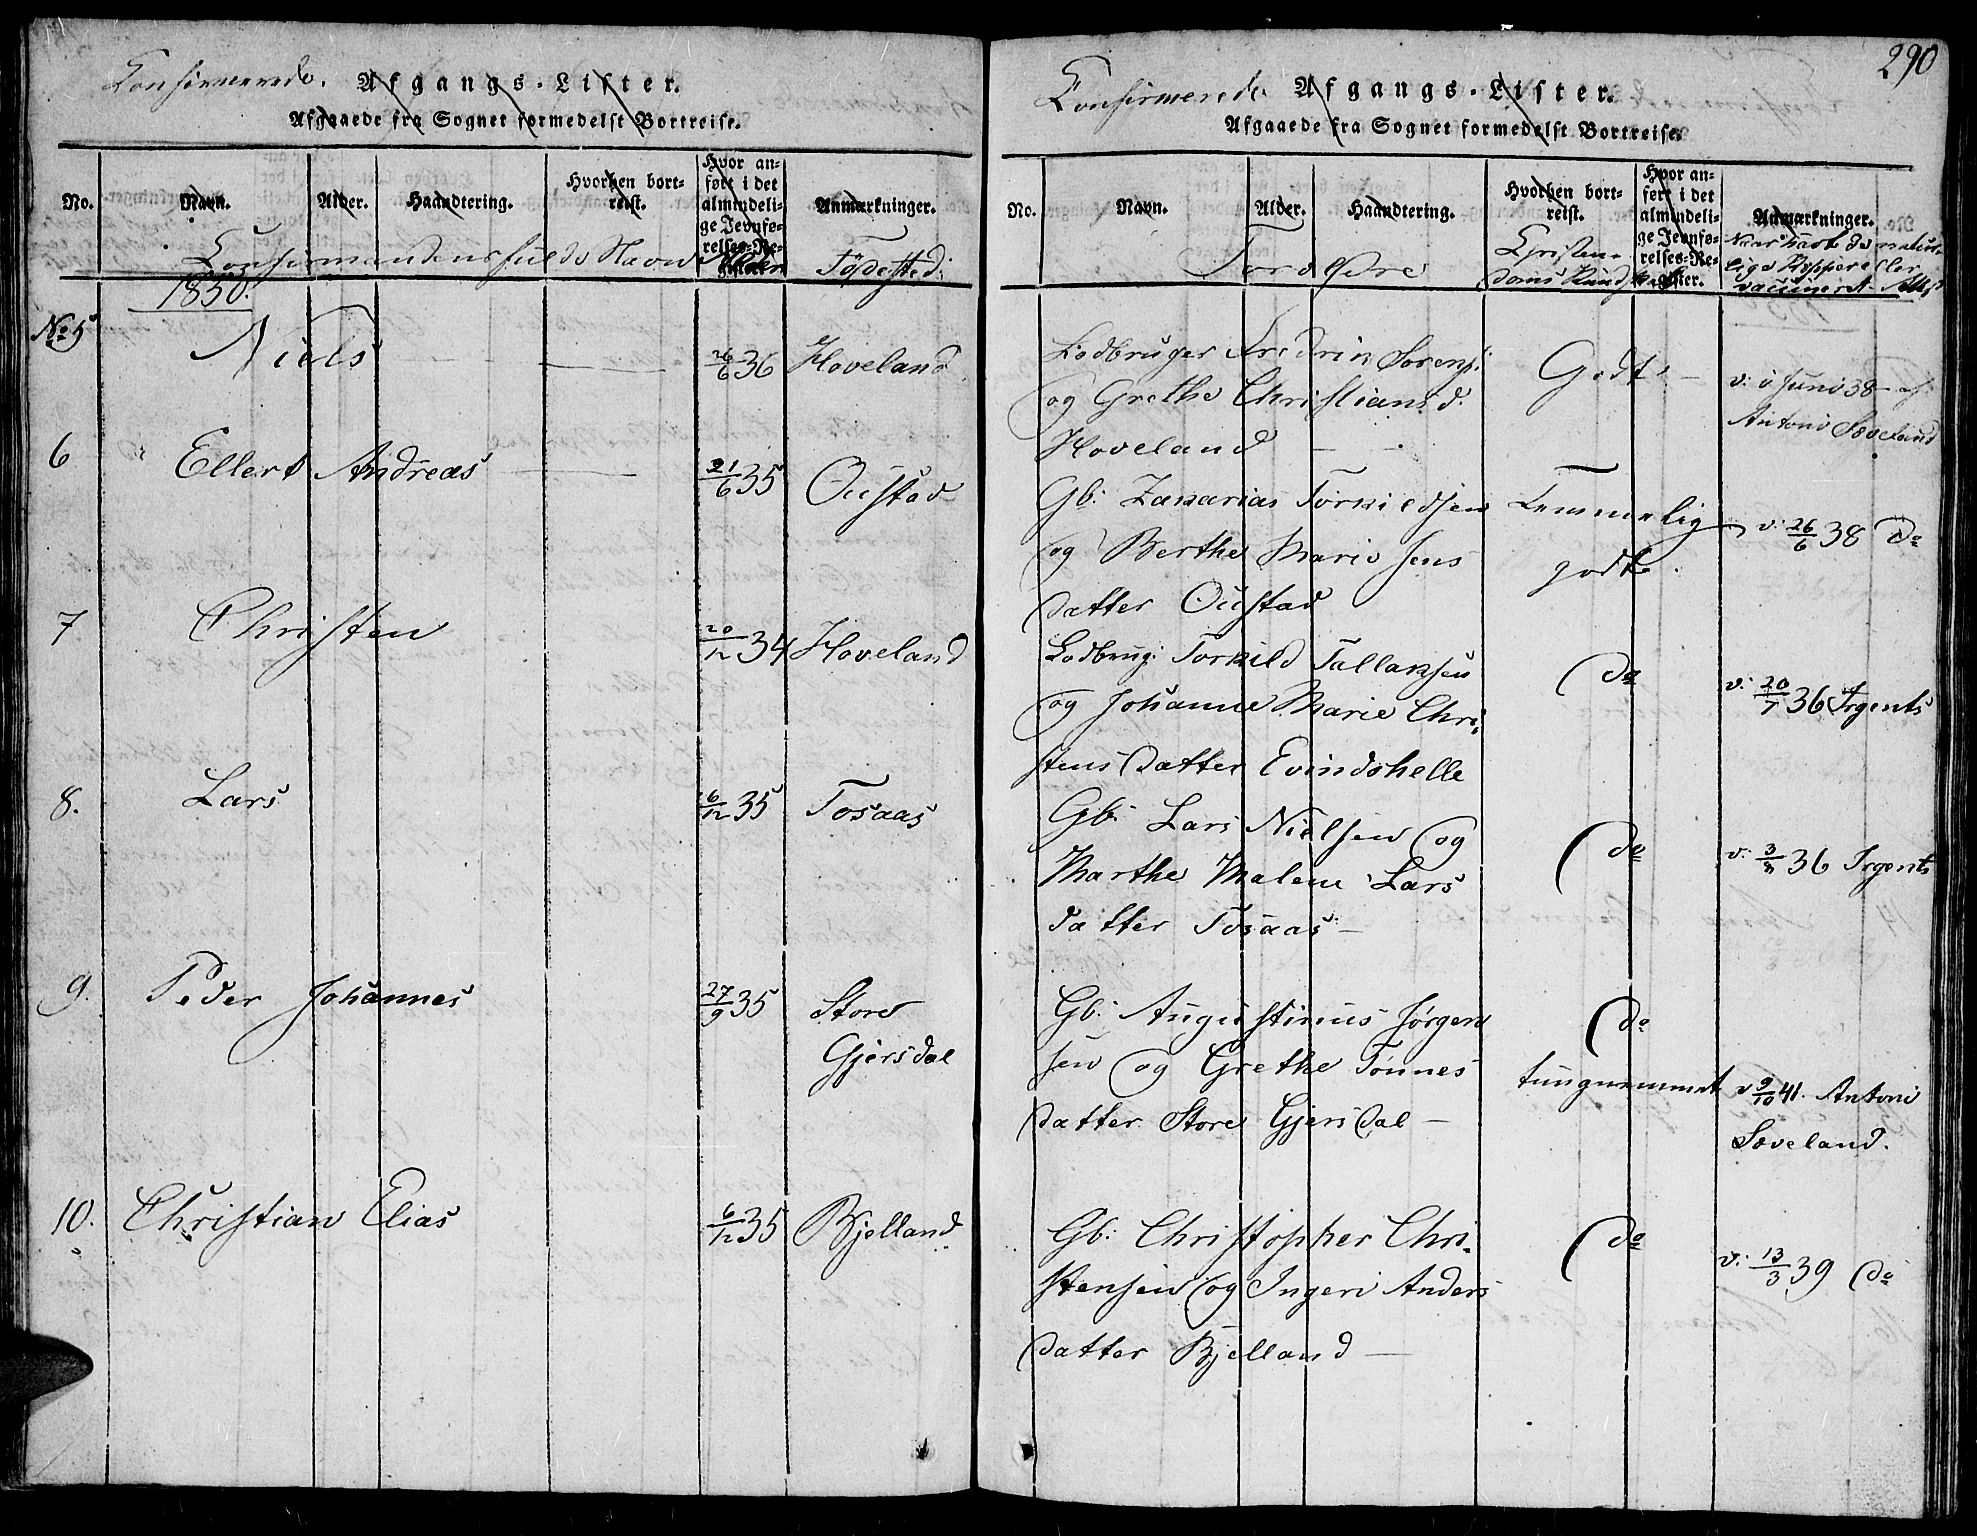 Confirmerede. Afgangs-Lister.
Afgaaede fra Sognet formedelst Bortreise.
No.
Navn.
Alder.
Haandtering.
Hvorhen bort-
reist.
Hvor an-
ført i det
almindeli-
ge Jevnfø-
relses-Re-
gister.
Anmærkninger.
Confirmandens fulde Navn
Alder
Fødested.
1850.
No 5 Niels 26/6 36 Hoveland
6 Ellert Andreas 21/6 35 Oustad
7 Christen 20/12 34 Hoveland
8. Lars 6/12 35 Tosaas
9. Peder Johannes 27/9 35 Store
Gjersdal
10. Christian Elias 6/12 35 Bjelland
290
Confirmerede Afgangs-Lister.
Afgaaede fra Sognet formedelst Bortreise.
No.
Navn.
Alder.
Haandtering.
Hvorhen bort-
reist.
Hvor an-
ført i det
almindeli-
ge Jevnfø-
relses-Re-
gister.
Anmærkninger.
Foreldre
Christen-
doms Kundskab
Naar havt de natur-
lige Kopper eller
vaccineret
Lodbruger Fredrik Sørens.
og Grethe Christians d.
Hoveland
Godt
v: i Juni 38 af
Antoni Søveland
Gb: Zakarias Torkildsen
og Berthe Marie Jens
datter Oustad
Temmelig
godt.
v: 26/6 38 Do
Lodbrug: Torkild Tallaksen
og Johanne Marie Chri-
stens datter Evindshelle
Do
v: 20/7 36 Trgents
Gb: Lars Nielsen og
Marthe Malene Lars
datter Tosaas
Do
v: 36 Trgents
Gb: Augustinus Jørgen
sen og Grethe Tønnes
datter Store Gjersdal
Do
tungnemmet
v 9/10 41. Antoni
Søveland.
Gb: Christopher Chri-
stensen og Ingeri Anders
datter Bjelland
Do
v: 13/3 39 Do